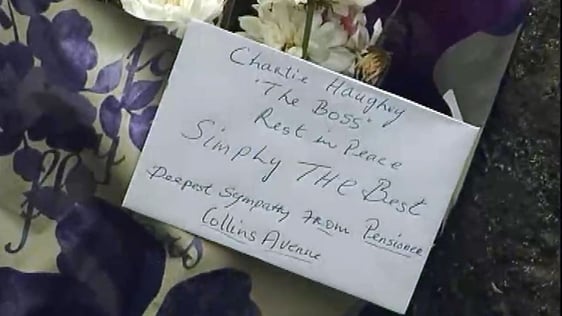 Charlie Haughey
'The Boss'
Rest in Peace
Simply THE Best
Deepest Sympathy FROM Pensioner
Collins Avenue